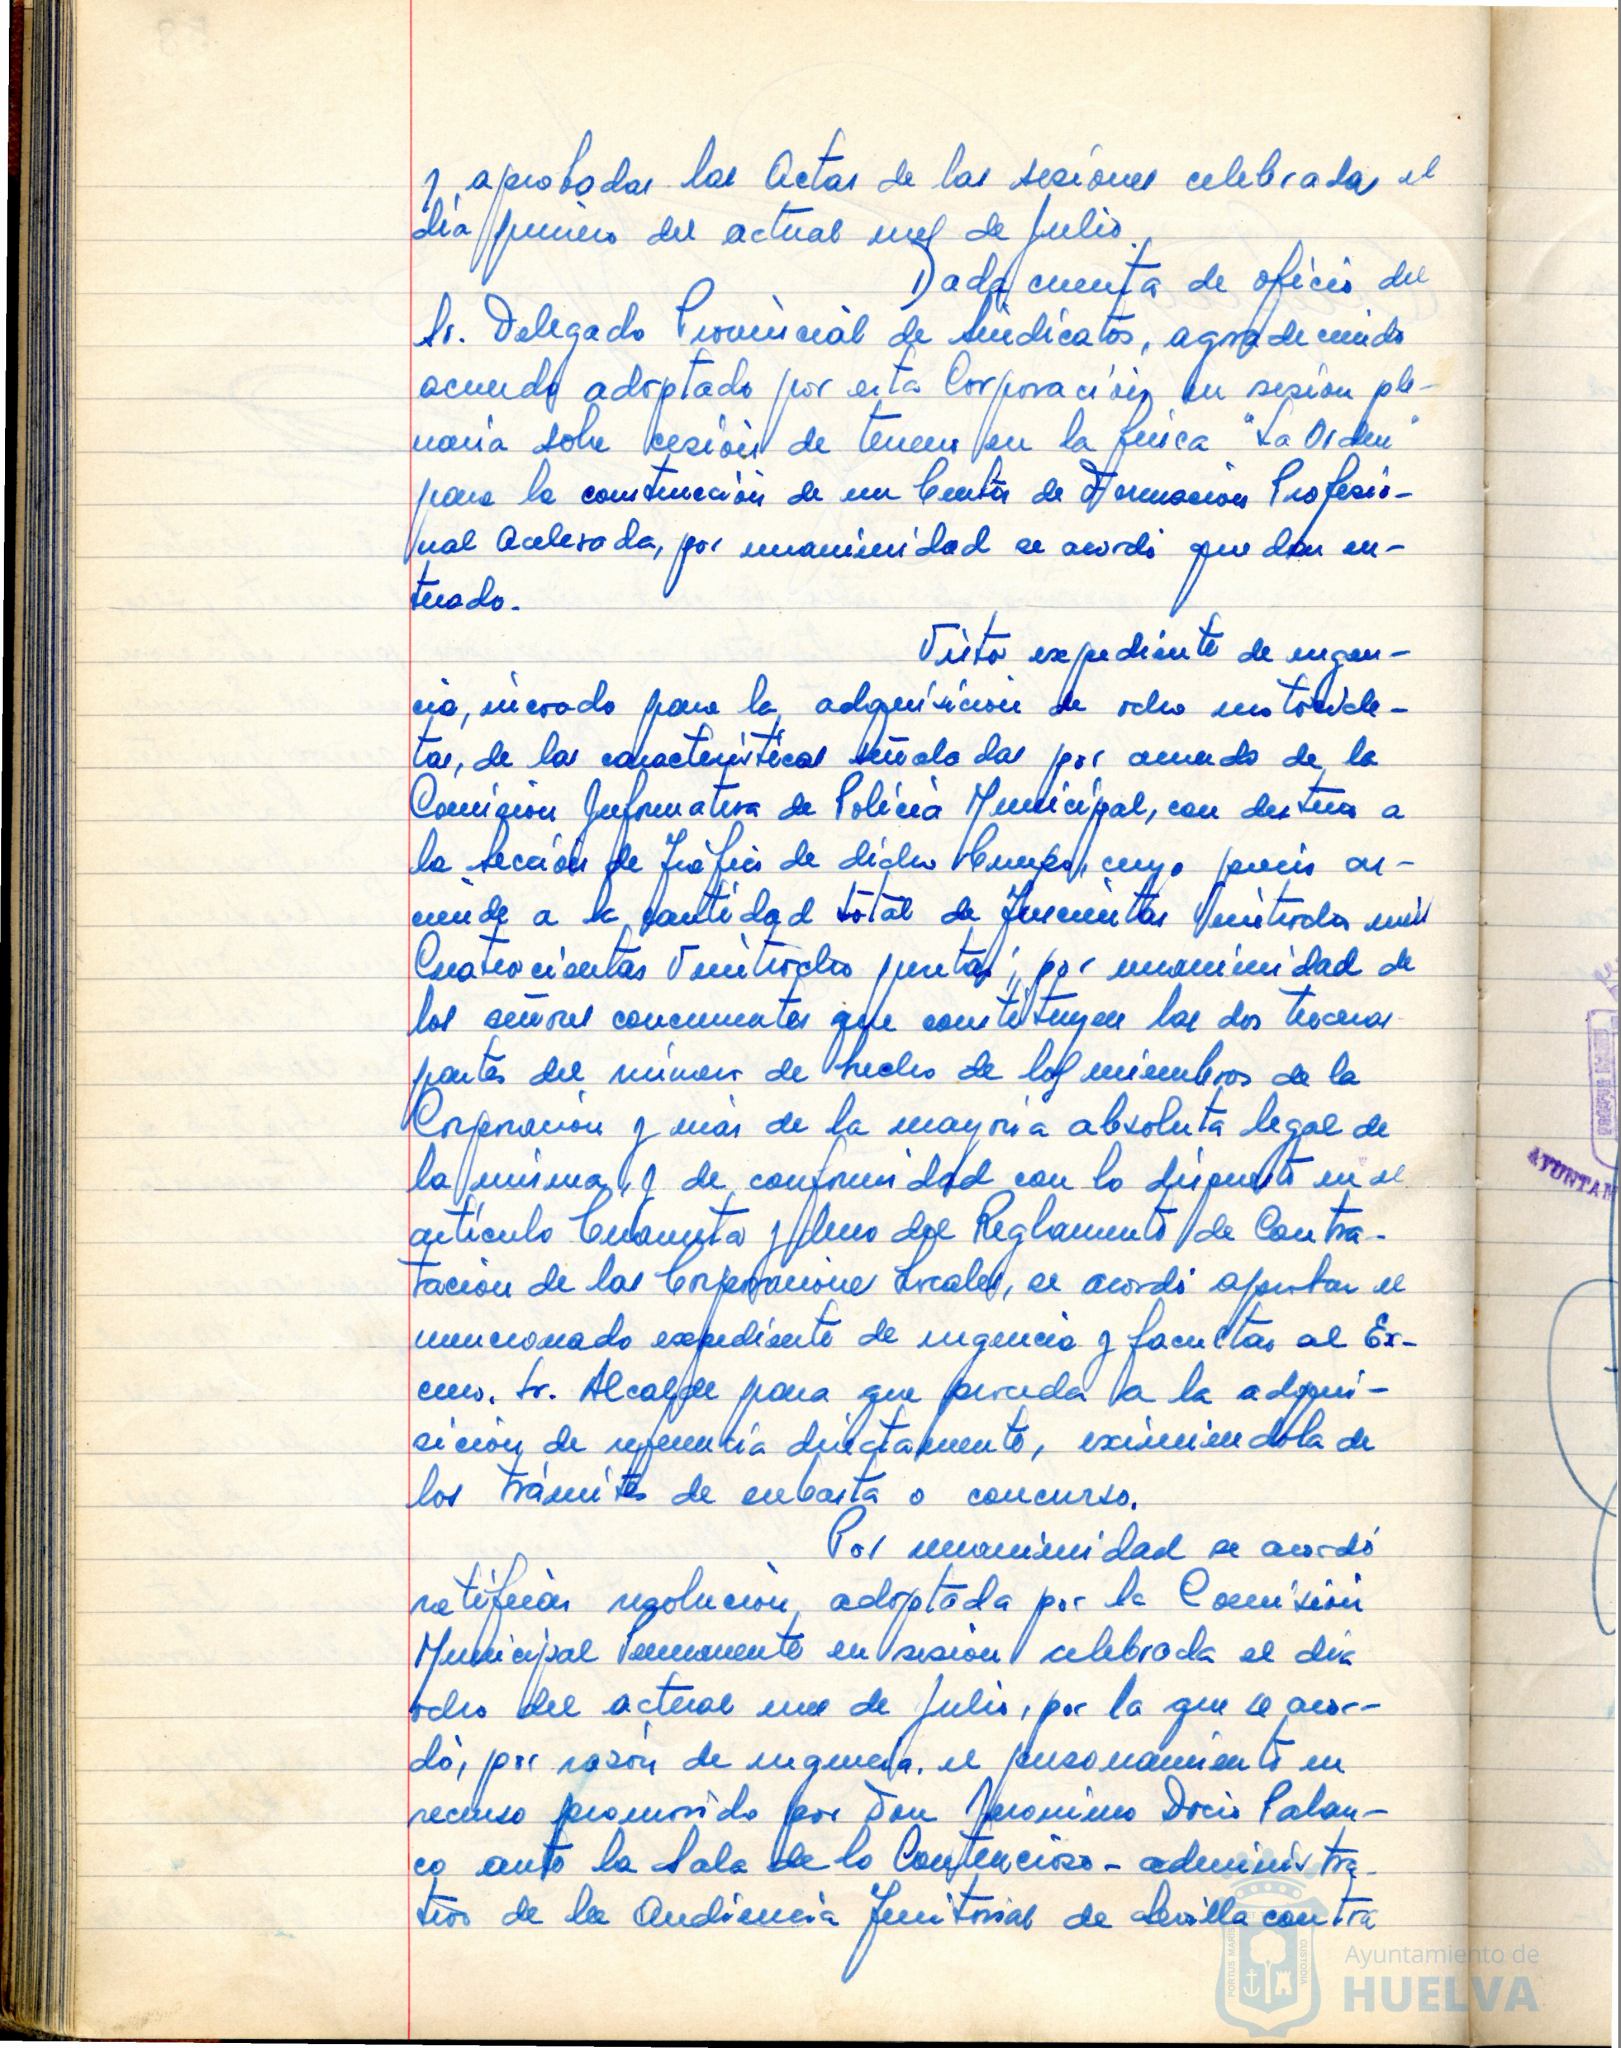 y aprobadas las Actas de las sesiones celebradas el
día primero del actual mes de Julio.
Dada cuenta de oficio del
Sr. Delegado Provincial de Sindicatos, agradeciendo
acuerdo adoptado por esta Corporación en sesión ple-
naria sobre cesión de terreno en la finca "La Orden"
para la construcción de un Centro de Formación Profesio-
nal Acelerada, por unanimidad se acordó quedar en-
terado.
Visto expediente de urgen-
cia, incoado para la adquisición de ocho motocicle-
tas, de las características señaladas por acuerdo de la
Comisión Informativa de Policía Municipal, con destino a
la Sección de Tráfico de dicho Cuerpo, cuyo precio as-
ciende a la cantidad total de Trescientas Veintiocho mil
Cuatrocientas Veintiocho pesetas; por unanimidad de
los señores concurrentes que constituyen las dos terceras
partes del número de hecho de los miembros de la
Corporación y más de la mayoría absoluta legal de
la misma, y de conformidad con lo dispuesto en el
artículo Cuarenta y Uno del Reglamento de Contra-
tación de las Corporaciones Locales, se acordó aprobar el
mencionado expediente de urgencia y facultar al Ex-
cmo. Sr. Alcalde para que proceda a la adqui-
sición de referencia directamente, eximiendola de
los trámites de subasta o concurso.
Por unanimidad se acordó
ratificar resolución adoptada por la Comisión
Municipal Permanente en sesión celebrada el día
ocho del actual mes de Julio, por la que se acor-
dó, por razón de urgencia, el personamiento en
recurso promovido por Don Jeronimo Docio Palan-
co ante la Sala de lo Contencioso-administra-
tivo de la Audiencia Territorial de Sevilla contra
AYUNTAM
PORTUS MARIS
CUSTODIA
Ayuntamiento de
HUELVA